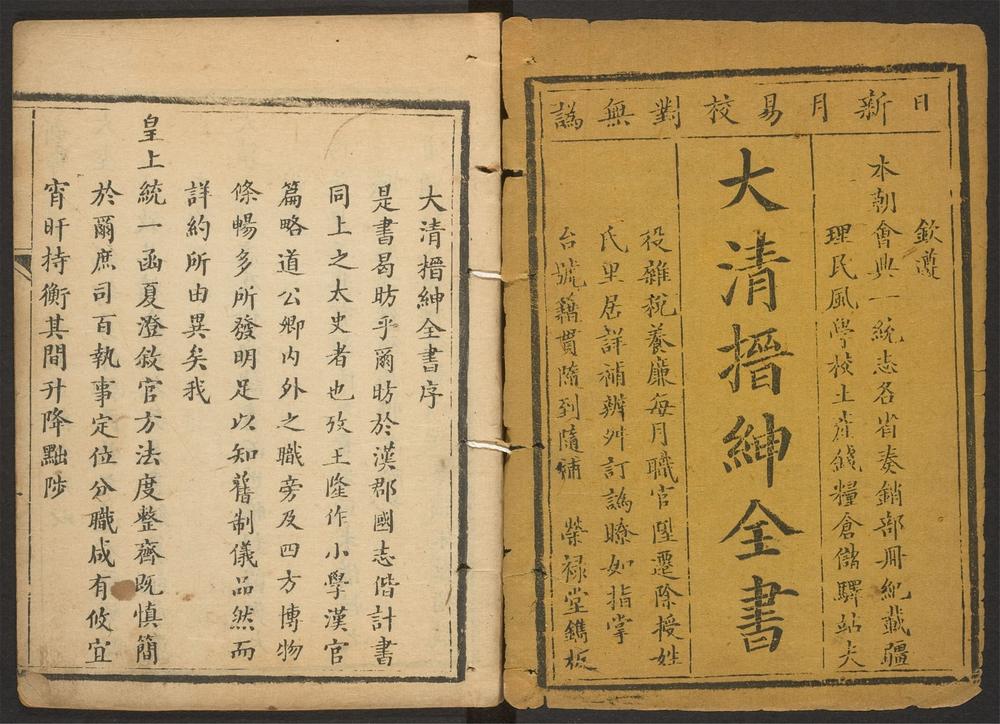 日新月易校對無譌
欽遵
本朝會典一統志各省奏銷部冊紀載疆
理民風學校土產錢糧倉儲驛站夫
大清搢紳全書
役雜稅養廉每月職官陞遷除授姓
氏里居詳補辨舛訂譌瞭如指掌
台號籍貫隨到隨補 榮祿堂鐫板
大清搢紳全書序
是書曷昉乎爾昉於漢郡國志偕計書
同上之太史者也攷王隆作小學漢官
篇略道公卿內外之職旁及四方博物
條暢多所發明足以知舊制儀品然而
詳約所由異矣我
皇上統一函夏澄敘官方法度整齊既慎簡
於爾庶司百執事定位分職咸有攸宜
宵旰持衡其間升降黜陟